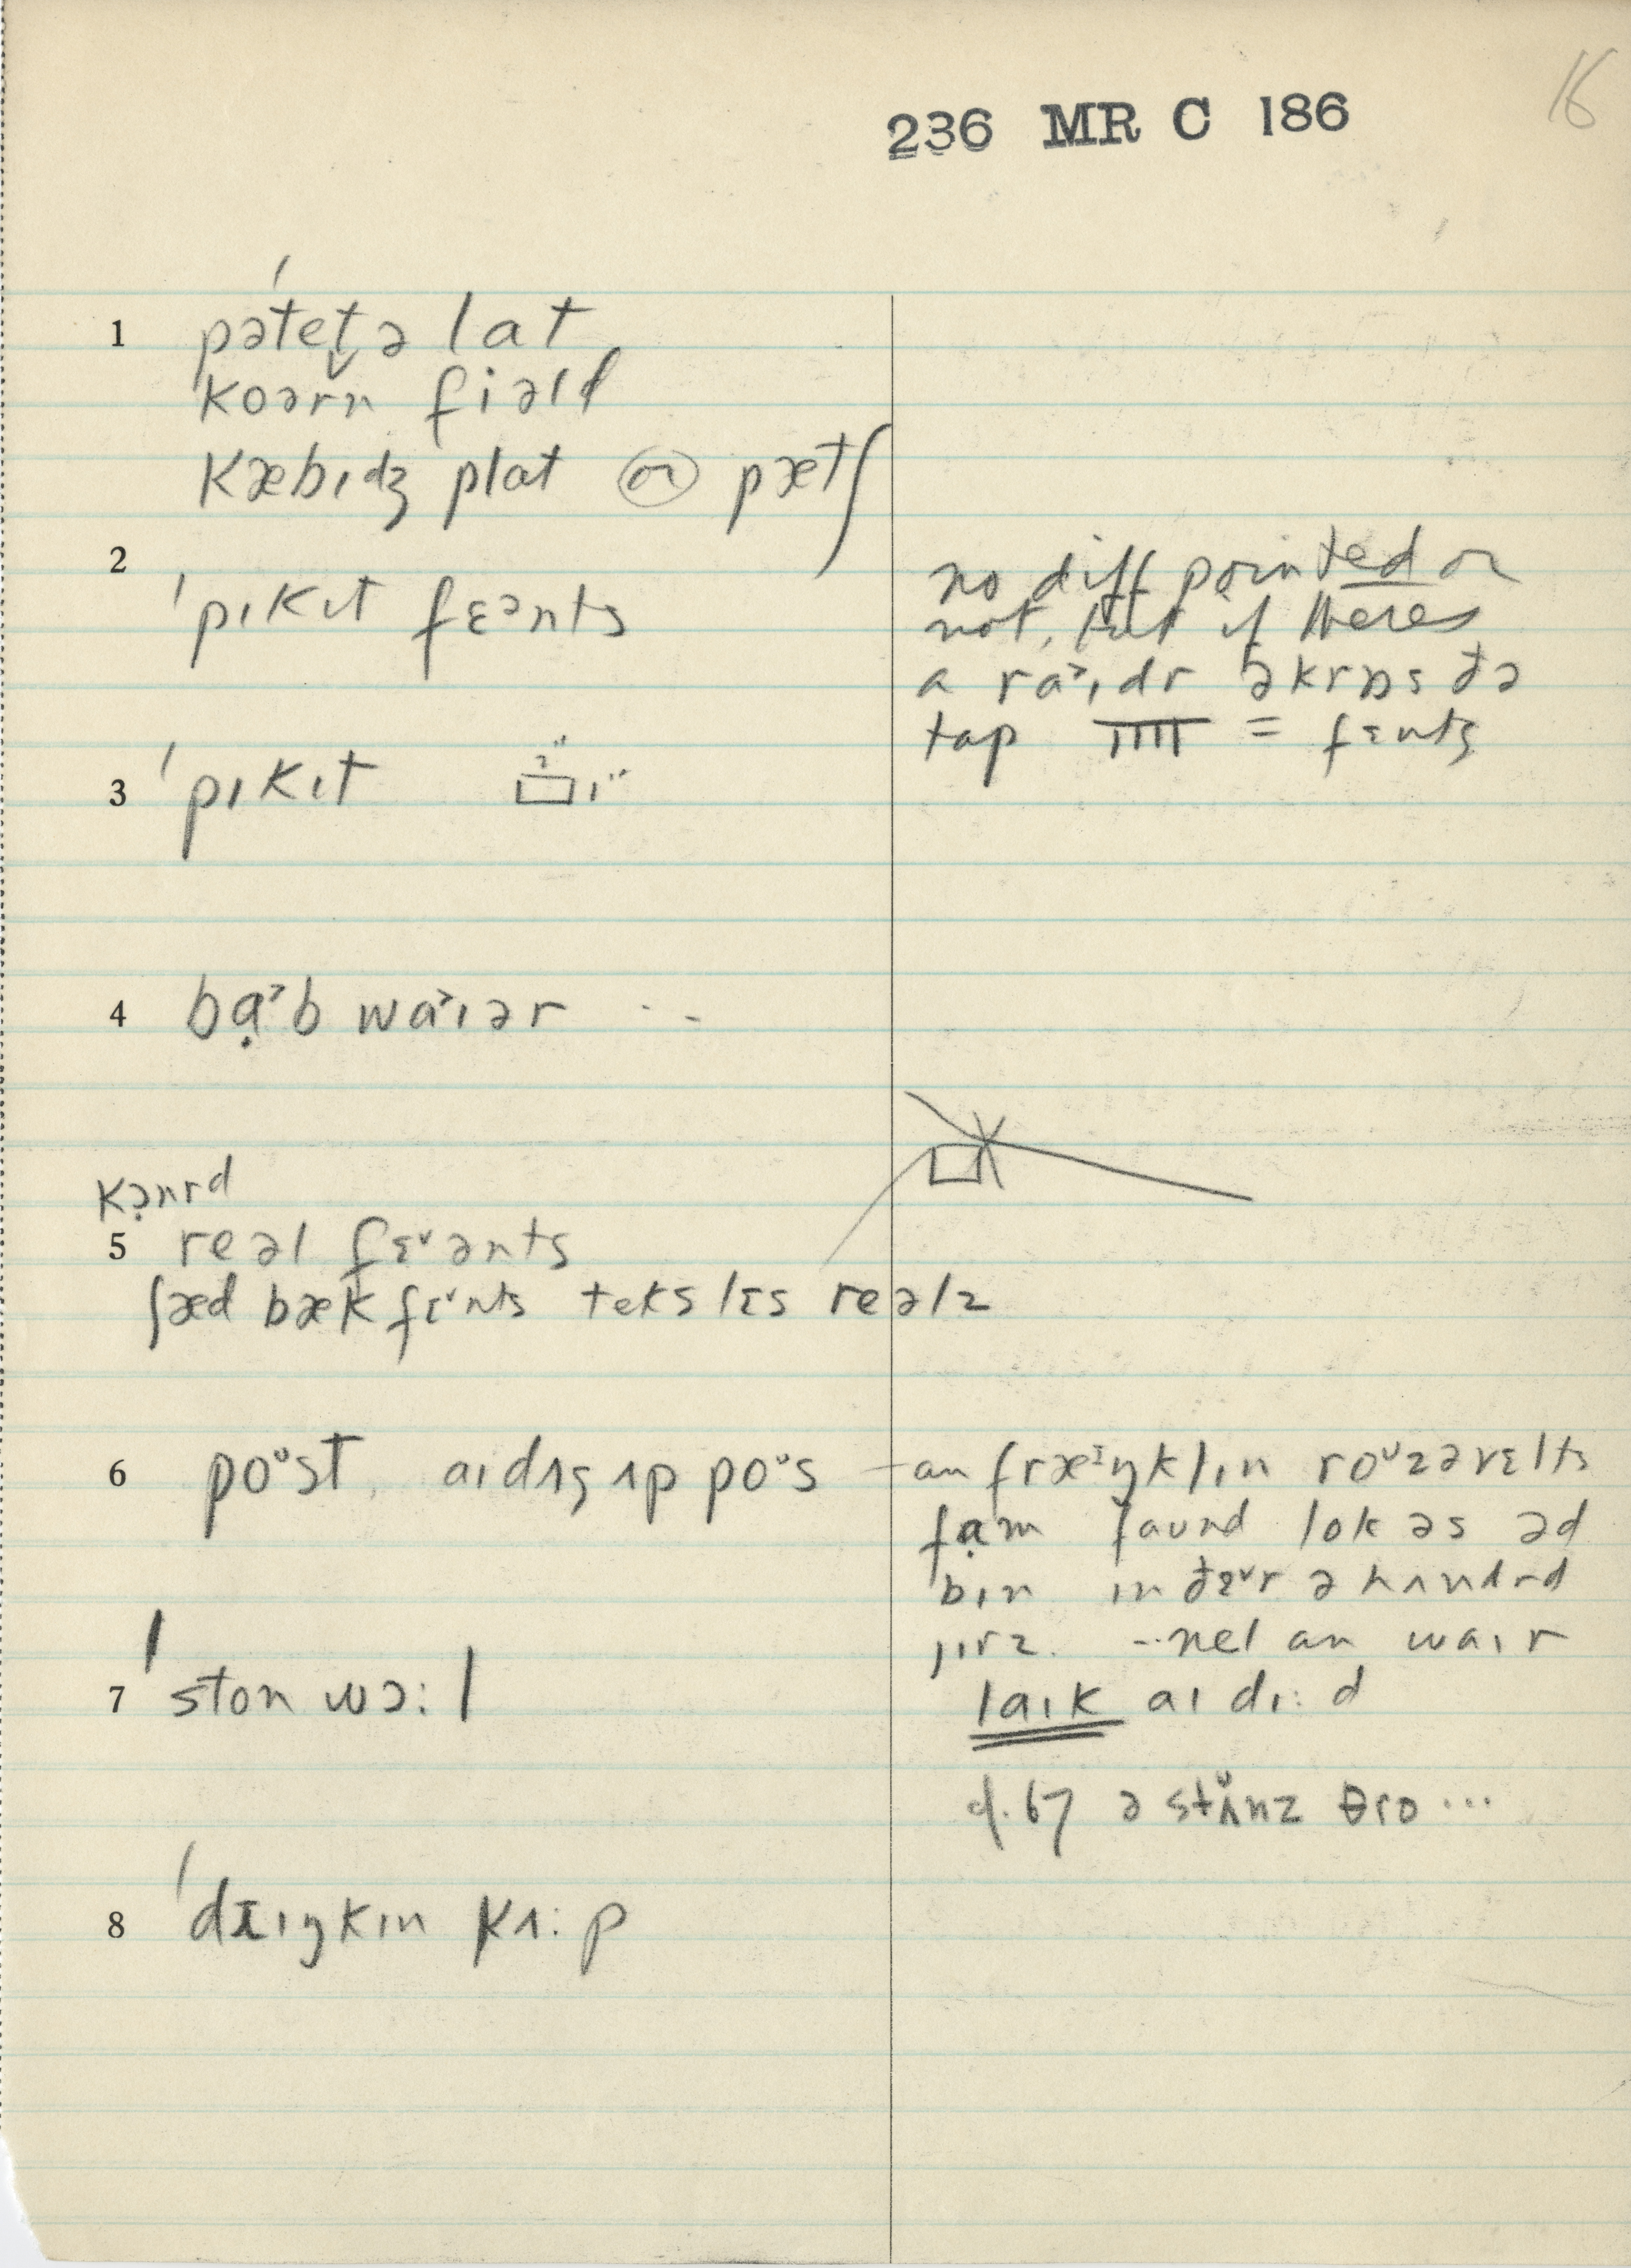 16
236 MR C 186
1 ˈpətet̬ə lat
ˈkoərn fiəld
kæbɪdʒ plat (or) pætʃ
2 ˈpɪkɪt fɛᵊnts
no diff pointed or
not, but if theres
a ra˃ɪdr əkrɒs ðə
tap = fɛnts
3 ˈpɪkɪt 3" 1"
4 bạ˃b wa˃ɪər --
kə̣nrd
5 reəl fɛ˅ənts
ʃæd bæk fɛ˅nts teks lɛs reəlz
6 poᶷst, aɪ dɪg ʌp poᶷs – an fræᶦŋklɪn roᶷzəvɛlts
fạ˃m faund lokəs əd
bɪn ɪn ðɛ˅r ə hʌndrd
jɪrz. --nel an waɪr
laɪk aɪ dɪ:d
7 ˈston wɔ:l
cf. 67 ə stʌ̆nz θro ...
8 ˈdrɪŋkɪn kʌ:p